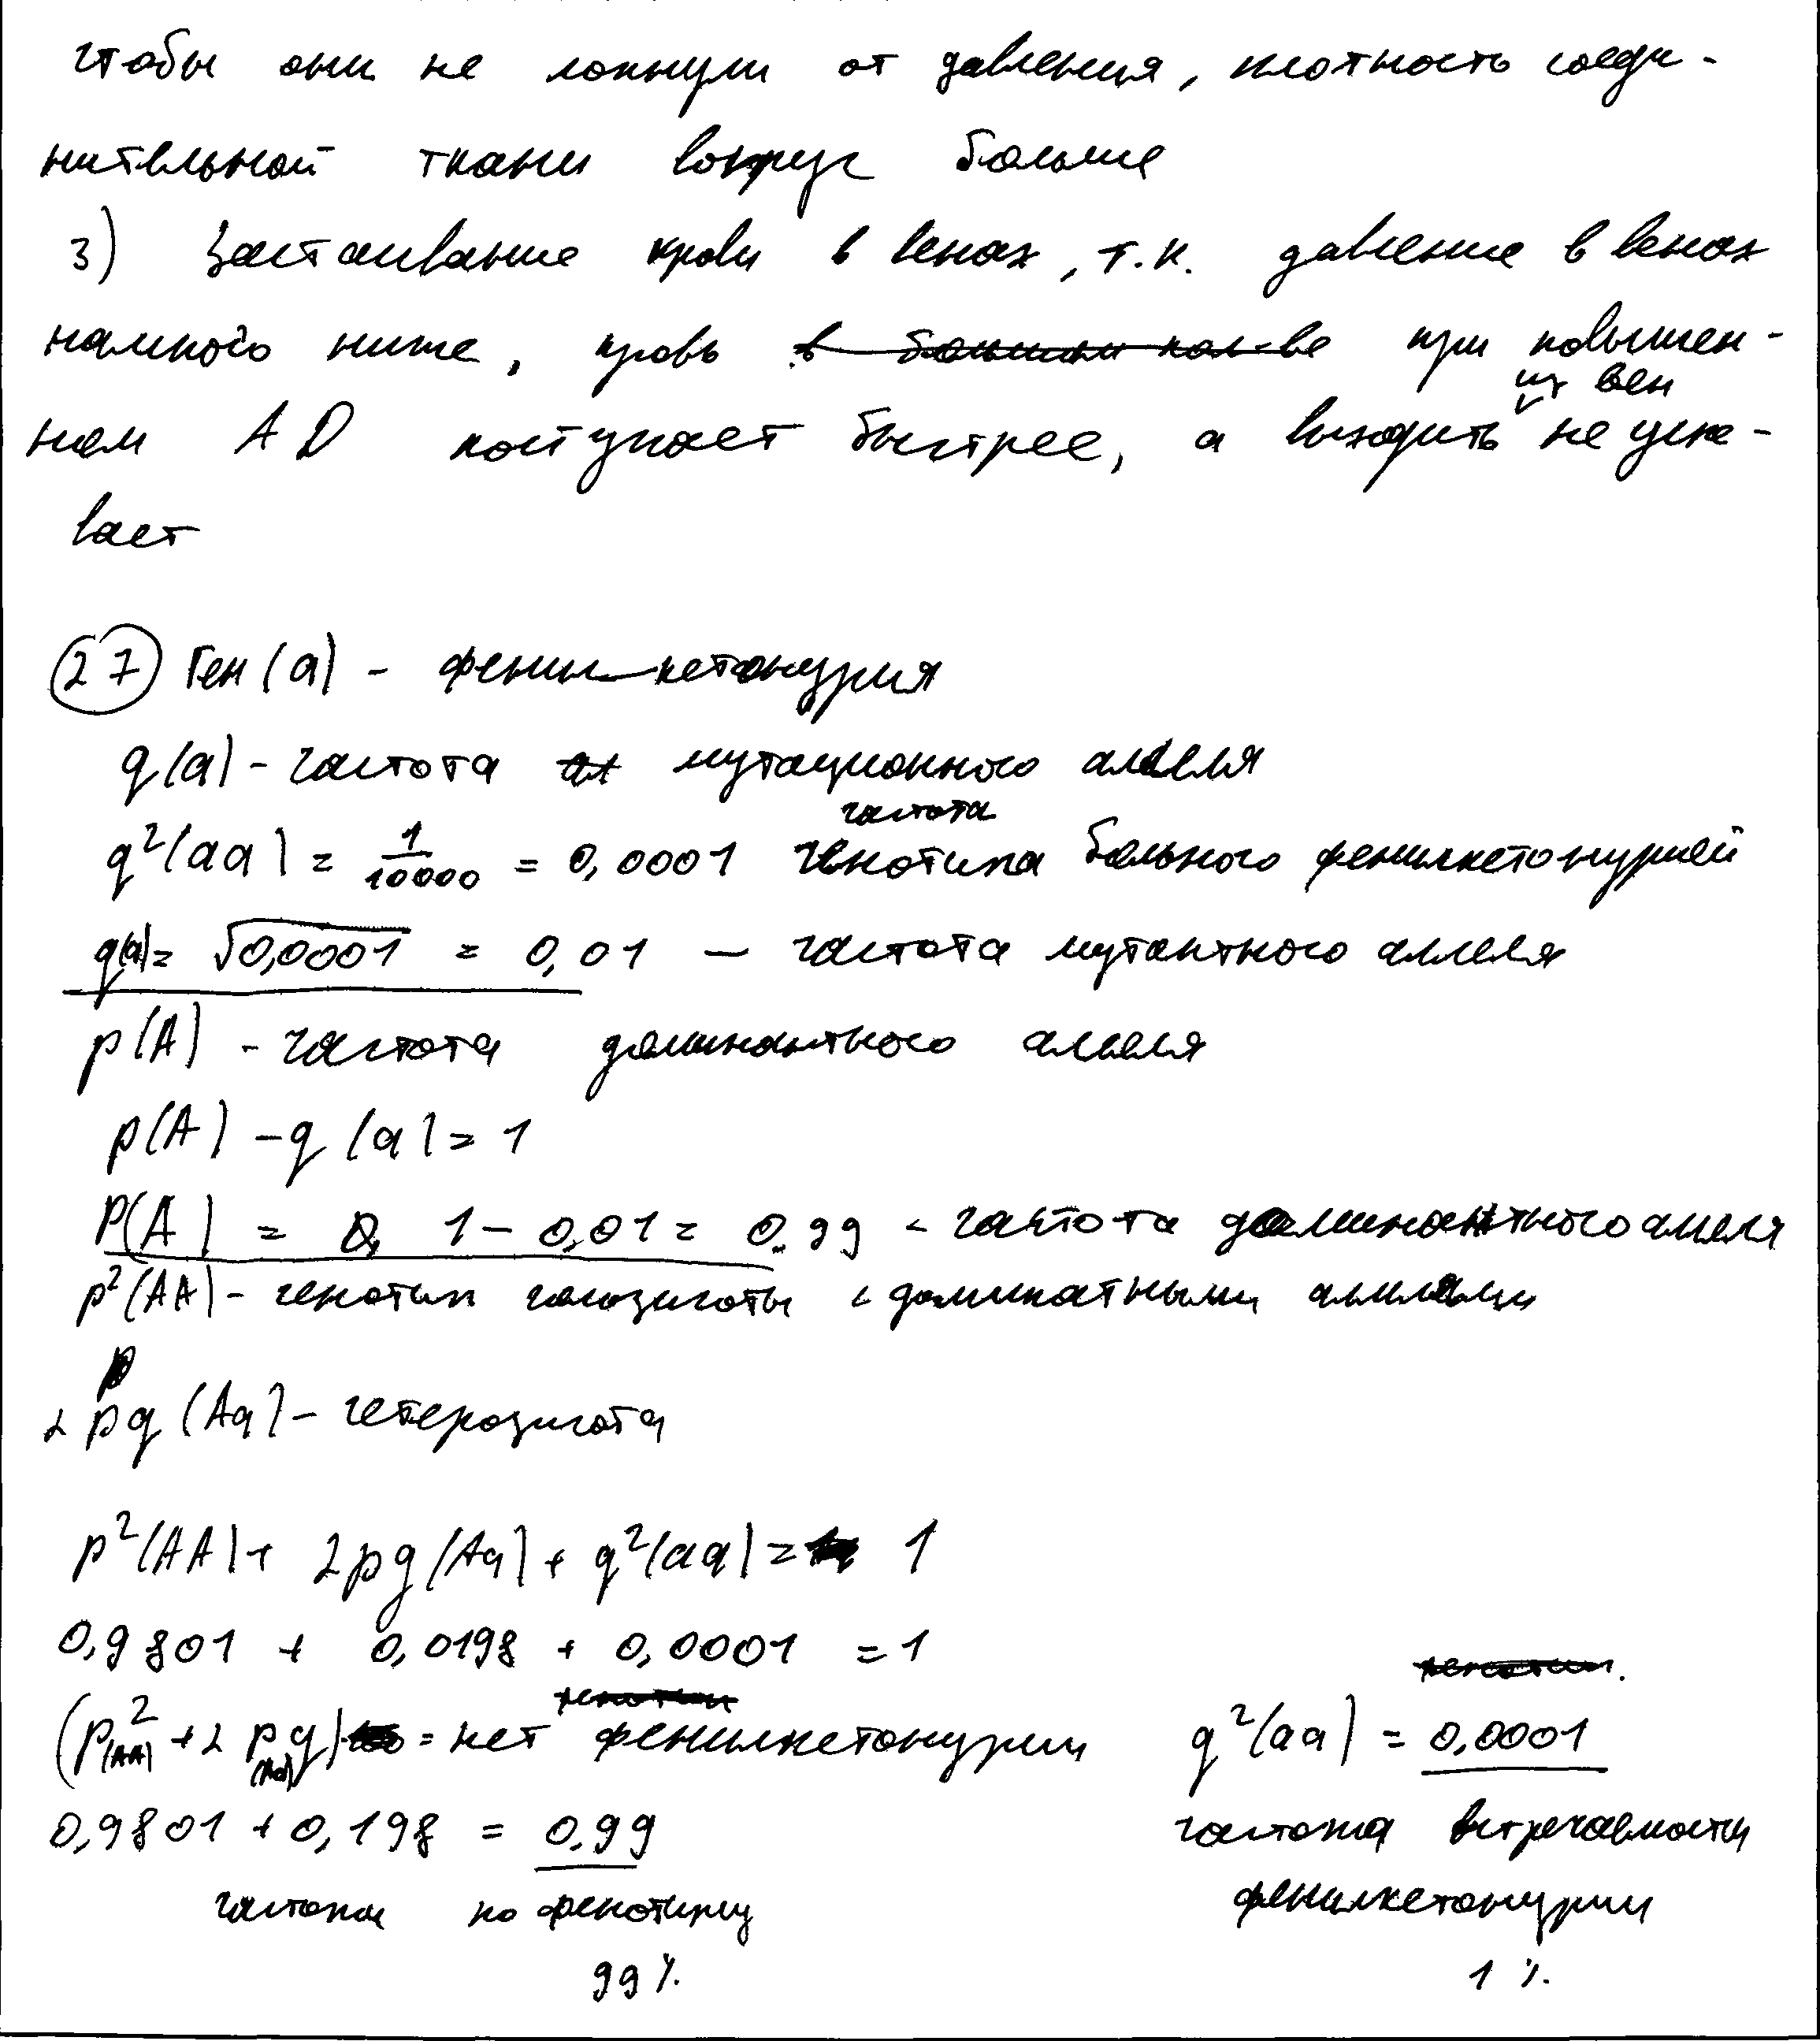 чтобы они не лопнули от давления, плотность соеди-
нительной ткани вокруг больше
3) Застаивание крови в венах, т.к. давление в венах
намного ниже, кровь в большом кол-ве при повышен-
из вен
ном АD поступает быстрее, а выходить не успе-
вает
27 Ген (а) - фенилкетонурия
q(a) - частота мутационного аллеля
частота
q²(aa) = 1/10000 = 0,0001 генотипа больного фенилкетонурией
q(a) = √0,0001 = 0,01 — частота мутантного аллеля
p(A) - частота доминантного аллеля
p(A) - q(a) = 1
P(A) = 0, 1 - 0,01 = 0.99 - частота доминантного аллеля
p²(AA) - генотип гомозиготы с доминатными аллелями
2pq (Aa) - гетерозигота
p²(AA) + 2pq(Aa) + q²(aa) = 1
0,9801 + 0,0198 + 0,0001 = 1
(p²(AA) + 2pq(Aa)) = нет фенилкетонурии
0,9801 + 0,198 = 0,99
частота по фенотипу
99%
q²(aa) = 0,0001
частота встречаемости
фенилкетонурии
1 %.